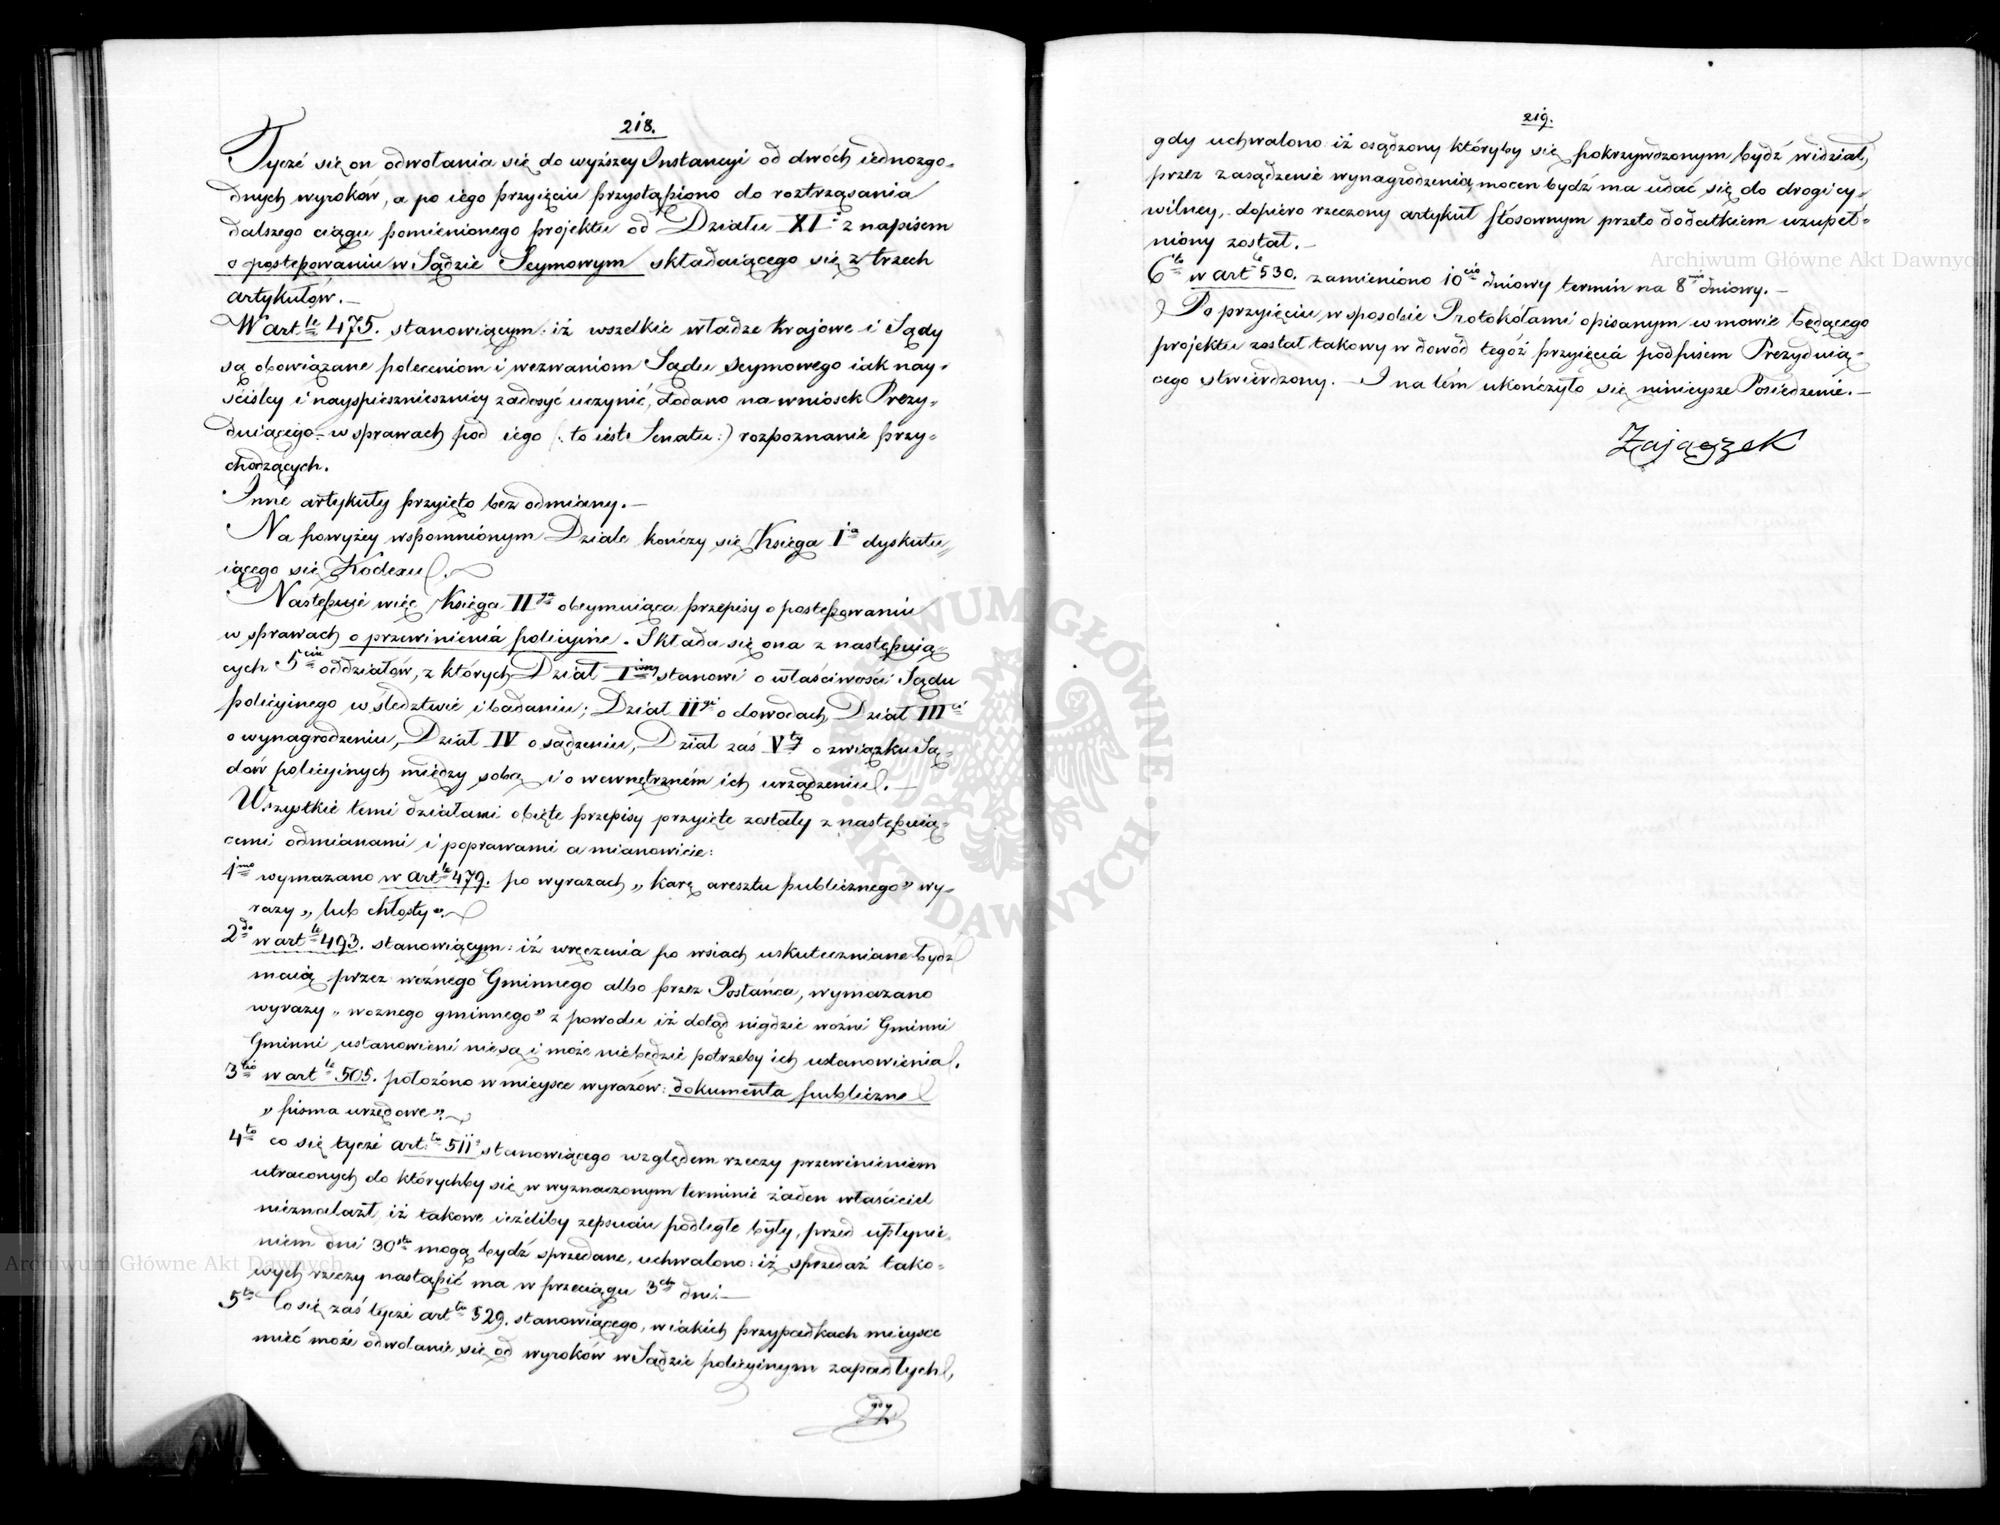 218.
Tyczé się on odwołania się do wyższey Instancyi od dwóch iednozgo-
dnych wyroków, a po iego przyięciu przystąpiono do roztrząsania
dalszego ciągu pomienionego projektu od Działu XI z napisem
o postępowaniu w Sądzie Seymowym składaiącego się z trzech
artykułów.—
W art le 475. stanowiącym: iż wszelkie władze krajowe i Sądy
są obowiązane poleceniom i wezwaniom Sądu Seymowego iak nay-
ściśley i nayspiesznieszniey zadosyć uczynić, dodano na wniosek Prezy-
duiącego – w sprawach pod iego (: to iest Senatu :) rozpoznanie przy-
chodzących.
Inne artykuły przyięto bez odmiany.—
Na powyżey wspomnionym Dziale kończy się Księga Ia dyskutu-
iącego się Kodexu.
Następuie więc Księga IIga obeymuiąca przepisy o postępowaniu
w sprawach o przewinienia policyine. Składa się ona z następuią-
cych 5ciu oddziałów, z których Dział Iwszy stanowi o właściwości Sądu
policyinego w śledztwie i badaniu; Dział IIgi o dowodach, Dział IIIci
o wynagrodzeniu, Dział IV o sądzeniu, Dział zaś Vty o związku Są-
dów policyinych między sobą i o wewnętrzném ich urządzeniu.—
Wszystkie temi działami obięte przepisy przyięte zostały z następuią-
cemi odmianami i poprawami a mianowicie:
1mo wymazano w art le 479. po wyrazach „karę aresztu publicznego” wy-
razy „lub chłosty”.
2do w art le 493. stanowiącym: iż wręczenia po wsiach uskuteczniane bydź
maią przez woźnego Gminnego albo przez Posłańca, wymazano
wyrazy „woznego gminnego” z powodu iż dotąd nigdzie woźni Gminni
Gminni ustanowieni nie są i może niebędzie potrzeby ich ustanowienia.
3tio w art le 505. położono w mieysce wyrazów: dokumenta publiczne
„pisma urzędowe”.
4to co się tyczé art: łu 511 stanowiącego względem rzeczy przewinieniem
utraconych do którychby się w wyznaczonym terminie żaden właściciel
nieznalazł, iż takowe ieżeliby zepsuciu podległe były, przed upłynie-
niem dni 30stu mogą bydź sprzedane, uchwalono: iż sprzedaż tako-
wych rzeczy nastąpić ma w przeciągu 3ch dni.—
5to Co się zaś tyczé art łu 529. stanowiącego, w iakich przypadkach mieysce
mieć może odwołanie się od wyroków w Sądzie policyinym zapadłych,
gdy
219.
gdy uchwalono: iż osądzony któryby się pokrzywdzonym bydź widział,
przez zasądzenie wynagrodzenia, mocen bydź ma udać się do drogi cy-
wilney, dopiero rzeczony artykuł stósownym przeto dodatkiem uzupeł-
niony został.—
6to w art le 530. zamieniono 10cio dniowy termin na 8mio dniowy.—
Po przyięciu w sposobie Protokółami opisanym w mowie będącego
projektu został takowy w dowód tegóż przyięcia podpisem Prezyduią-
cego stwierdzony.— I na tém ukończyło się ninieysze Posiedzenie.—
Zajączek
Archiwum Główne Akt Dawnych
Archiwum Główne Akt Dawnych
ARCHIWUM GŁÓWNE · AKT DAWNYCH ·